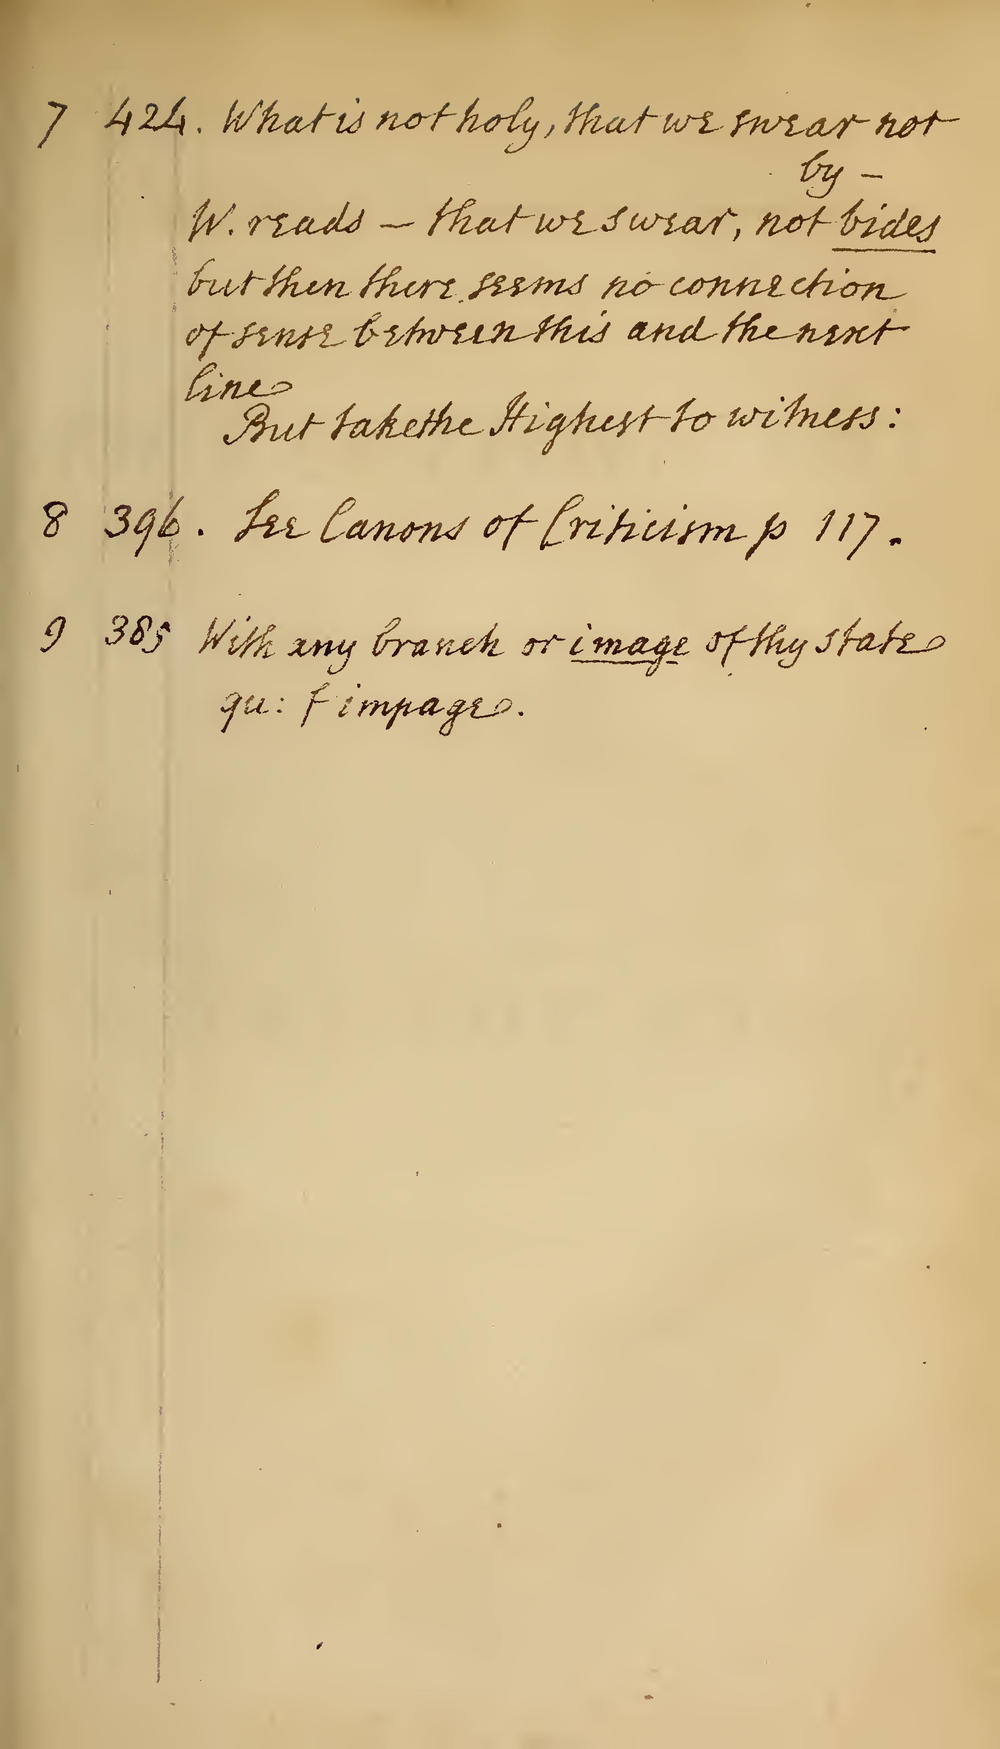 7 424. What is not holy, that we swear not
by —
W. reads — that we swear, not bides
but then there seems no connection
of sense between this and the next
line
But take the Highest to witness:
8 396. See Canons of Criticism p 117.
9 385 With any branch or image of thy state
qu: f impage.